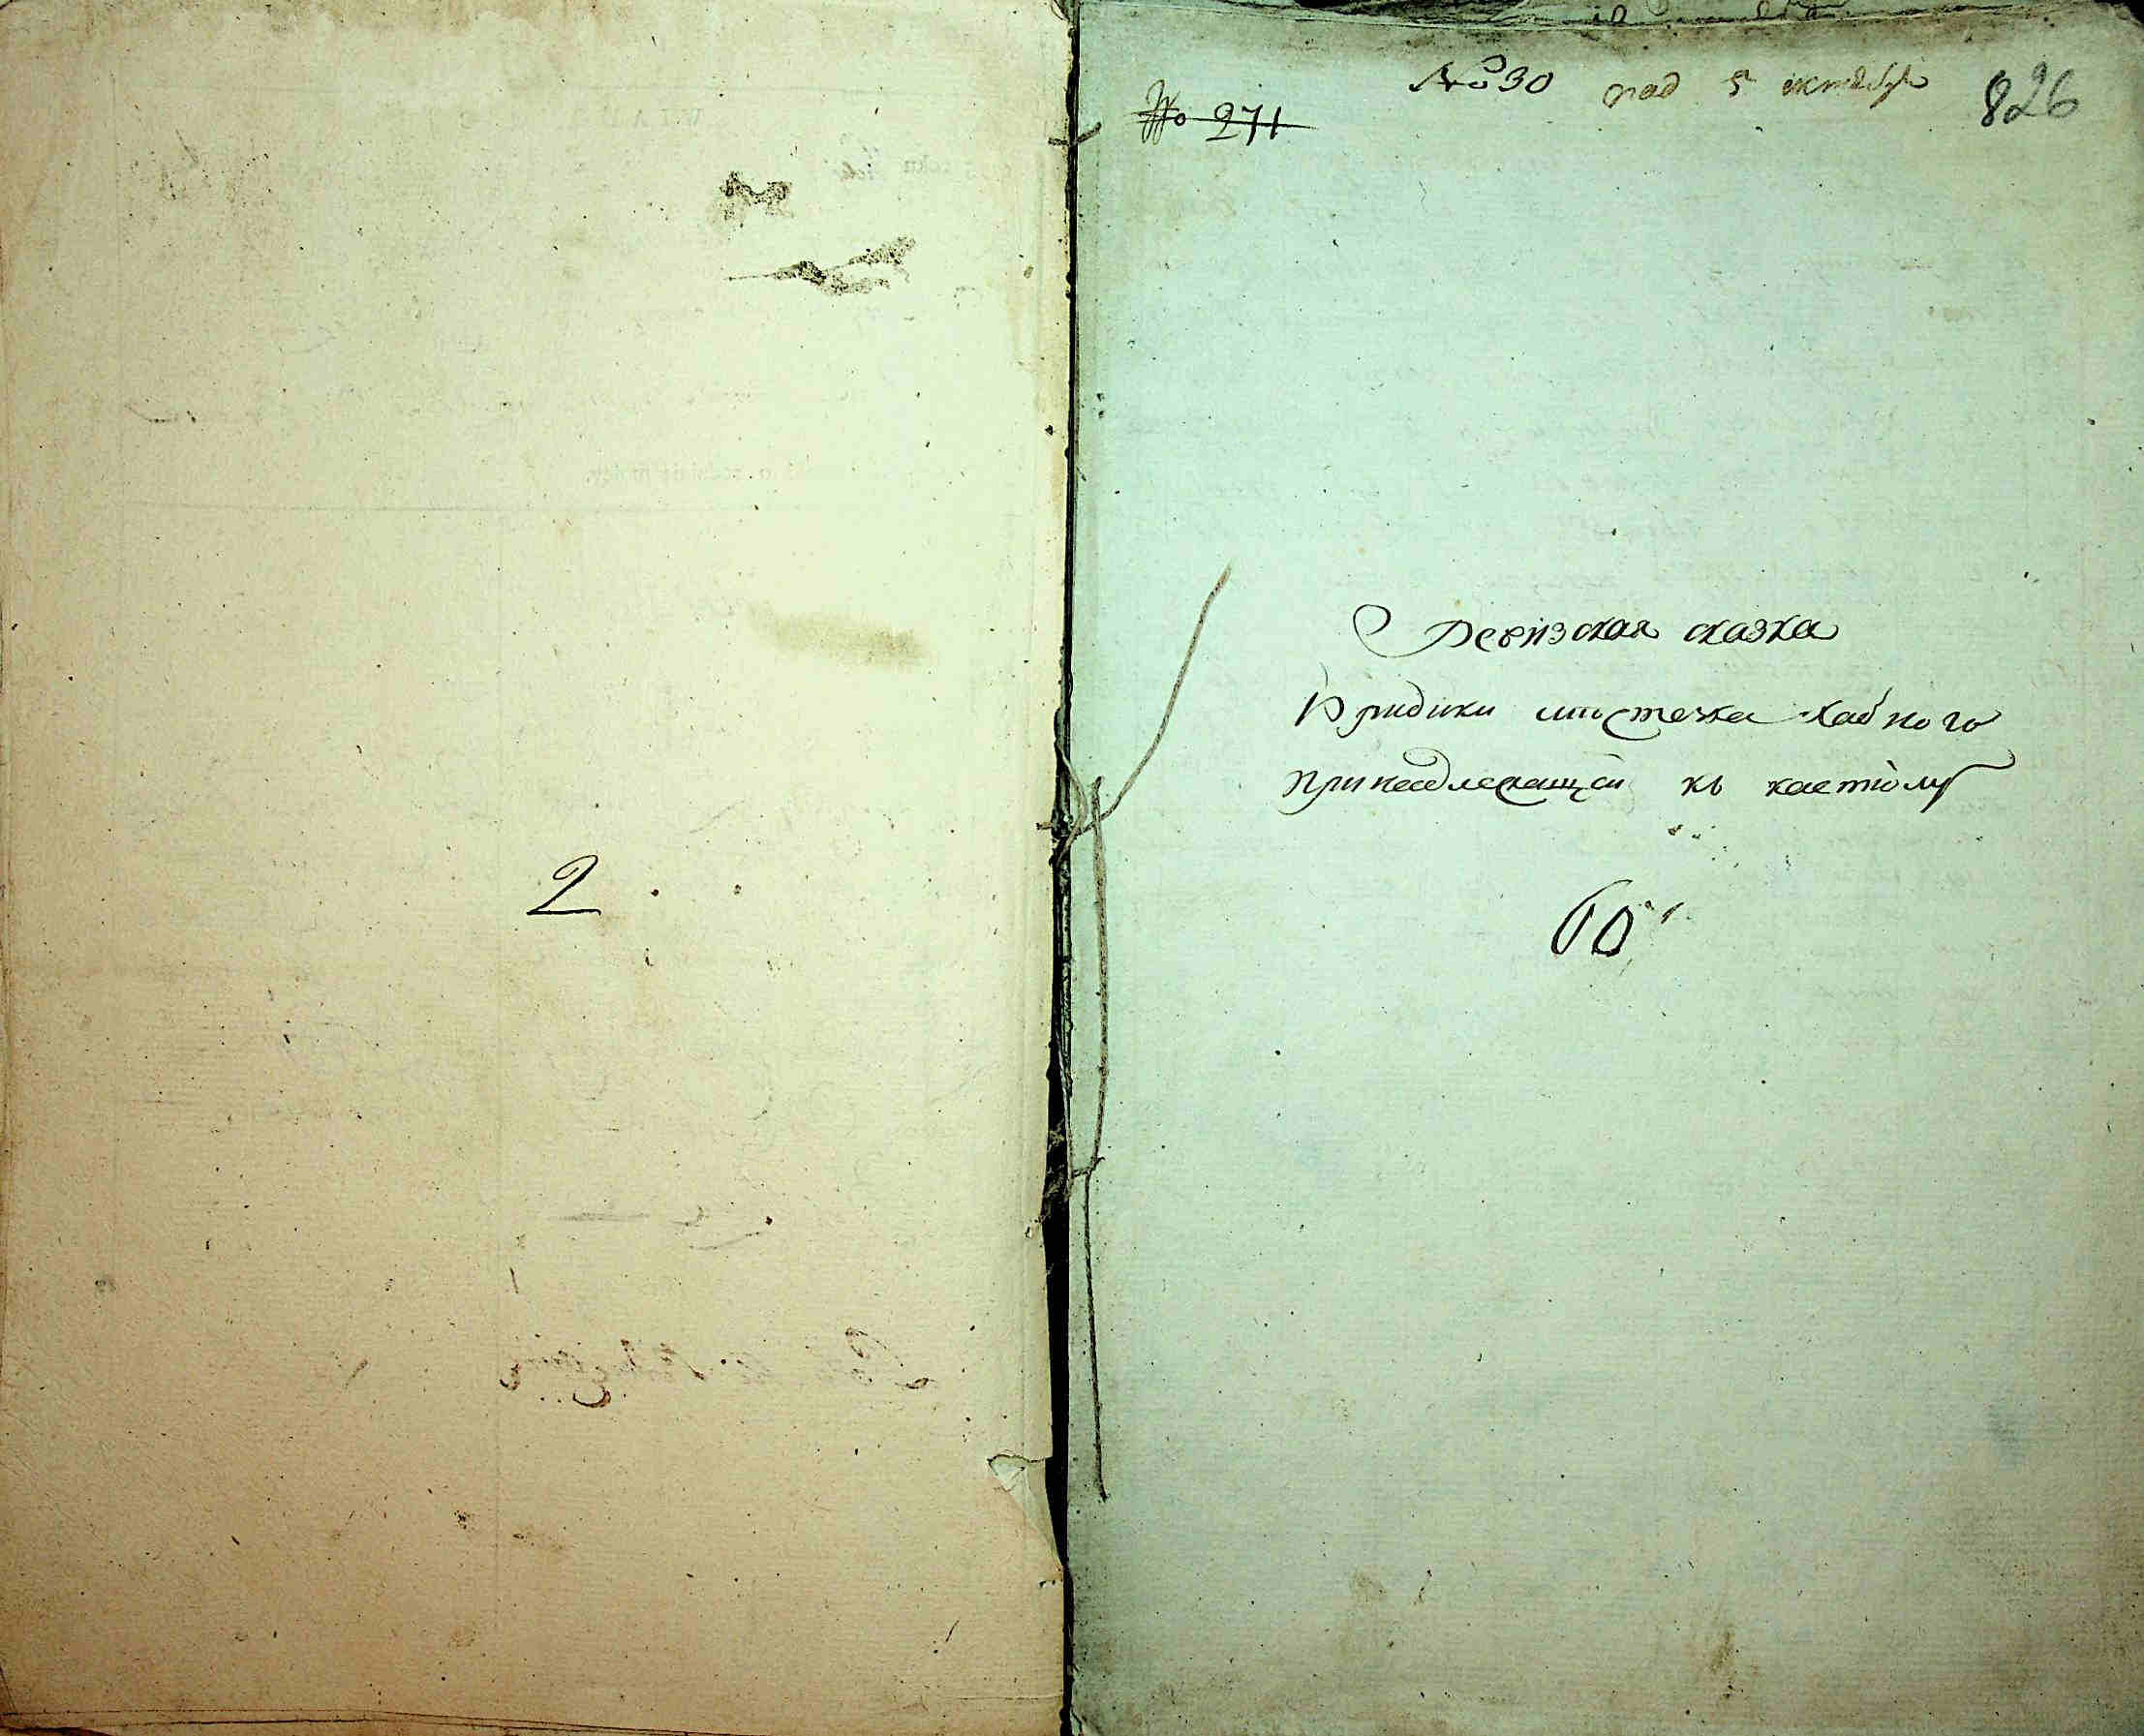 2
№ 271
№ 30 под 5 октября
826
Ревизская сказка
Юридики местечка Хабного
принадлежащей къ костіолу
60